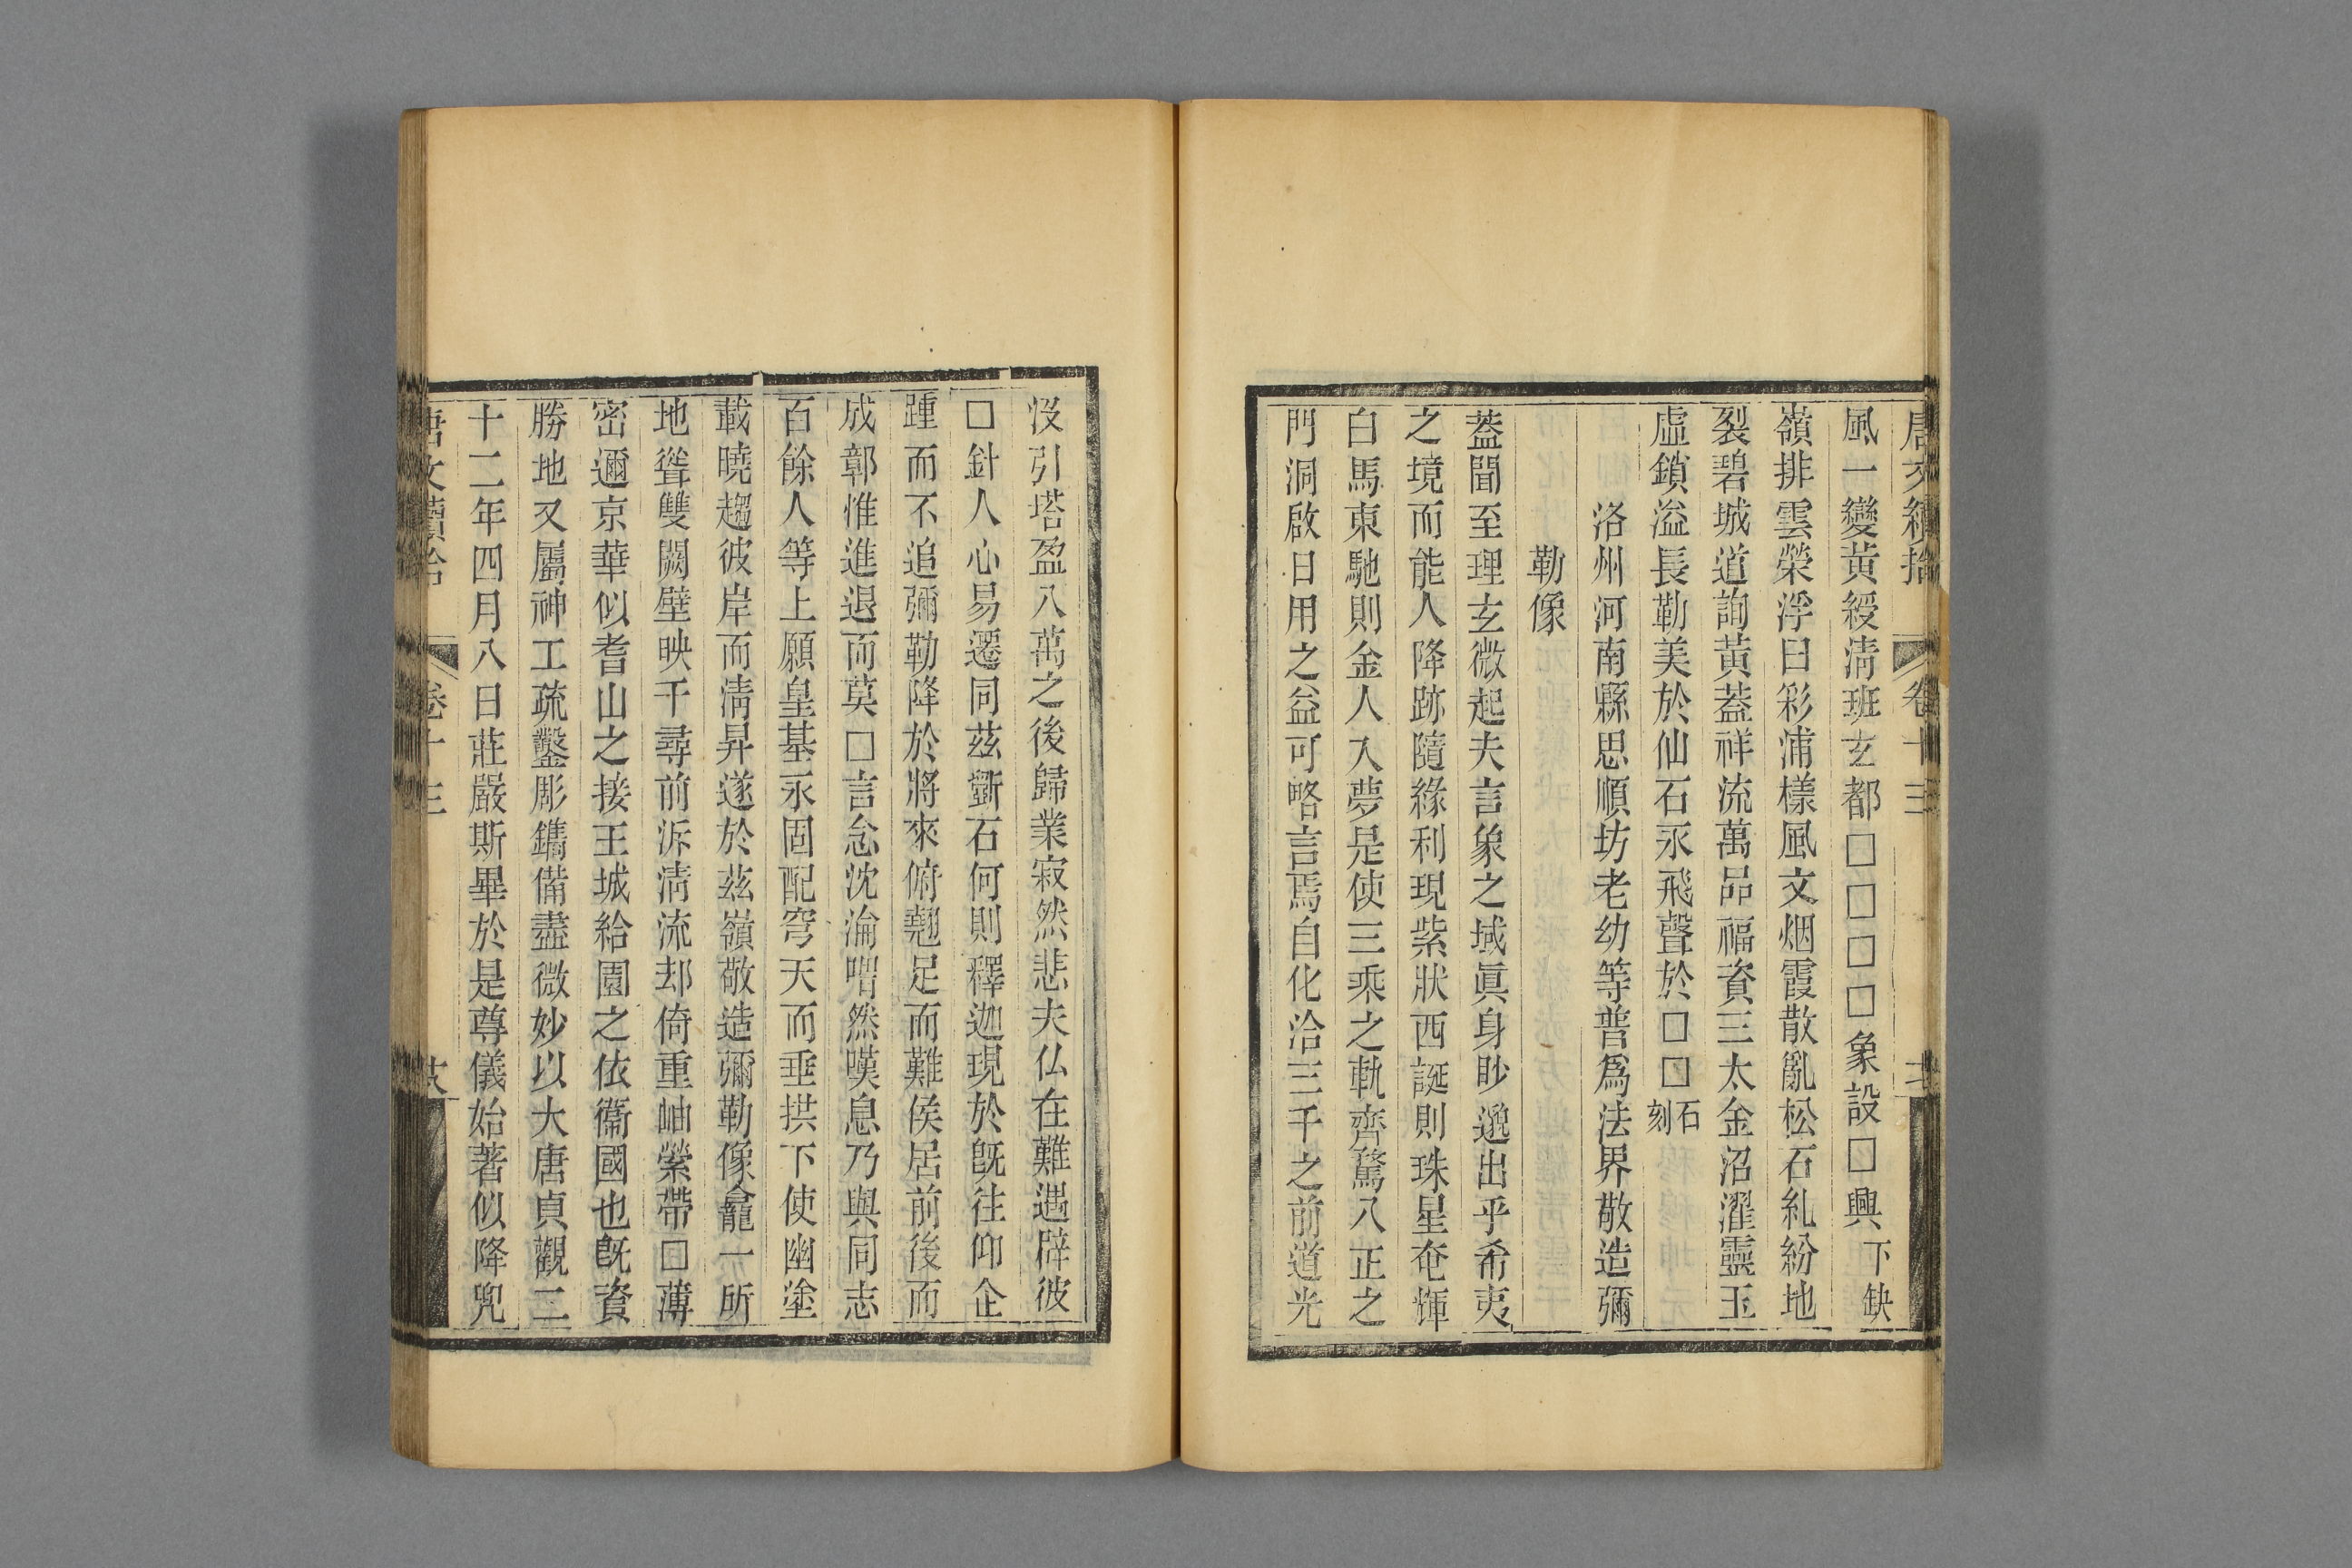 唐文續拾 卷十三
風一變黃綬淸班玄都□□□□象設□興下缺
嶺排雲榮浮日彩浦樣風文烟霞散亂松石糺紛地
裂碧城道詢黃蓋祥流萬品福資三太金沼濯靈玉
虛鎖溢長勒美於仙石永飛聲於□□石刻
洛州河南縣思順坊老幼等普爲法界敬造彌
勒像
蓋聞至理玄微起夫言象之域眞身眇邈出乎希夷
之境而能人降跡隨緣利現紫狀西誕則珠星奄輝
白馬東馳則金人入夢是使三乘之軌齊騖八正之
門洞啟日用之益可略言焉自化洽三千之前道光
沒引塔盈八萬之後歸業寂然悲夫仏在難遇辟彼
□針人心易遷同茲斲石何則釋迦現於旣往仰企
踵而不追彌勒降於將來俯翹足而難俟居前後而
成鄣惟進退而莫□言念沈淪喟然嘆息乃與同志
百餘人等上願皇基永固配穹天而垂拱下使幽塗
載曉趨彼岸而淸昇遂於茲嶺敬造彌勒像龕一所
地聳雙闕壁映千尋前泝淸流却倚重岫縈帶□薄
密邇京華似耆山之接王城給園之依衞國也旣資
勝地又屬神工疏鑿彫鐫備盡微妙以大唐貞觀二
十二年四月八日莊嚴斯畢於是尊儀始著似降兜
唐文續拾 卷十三